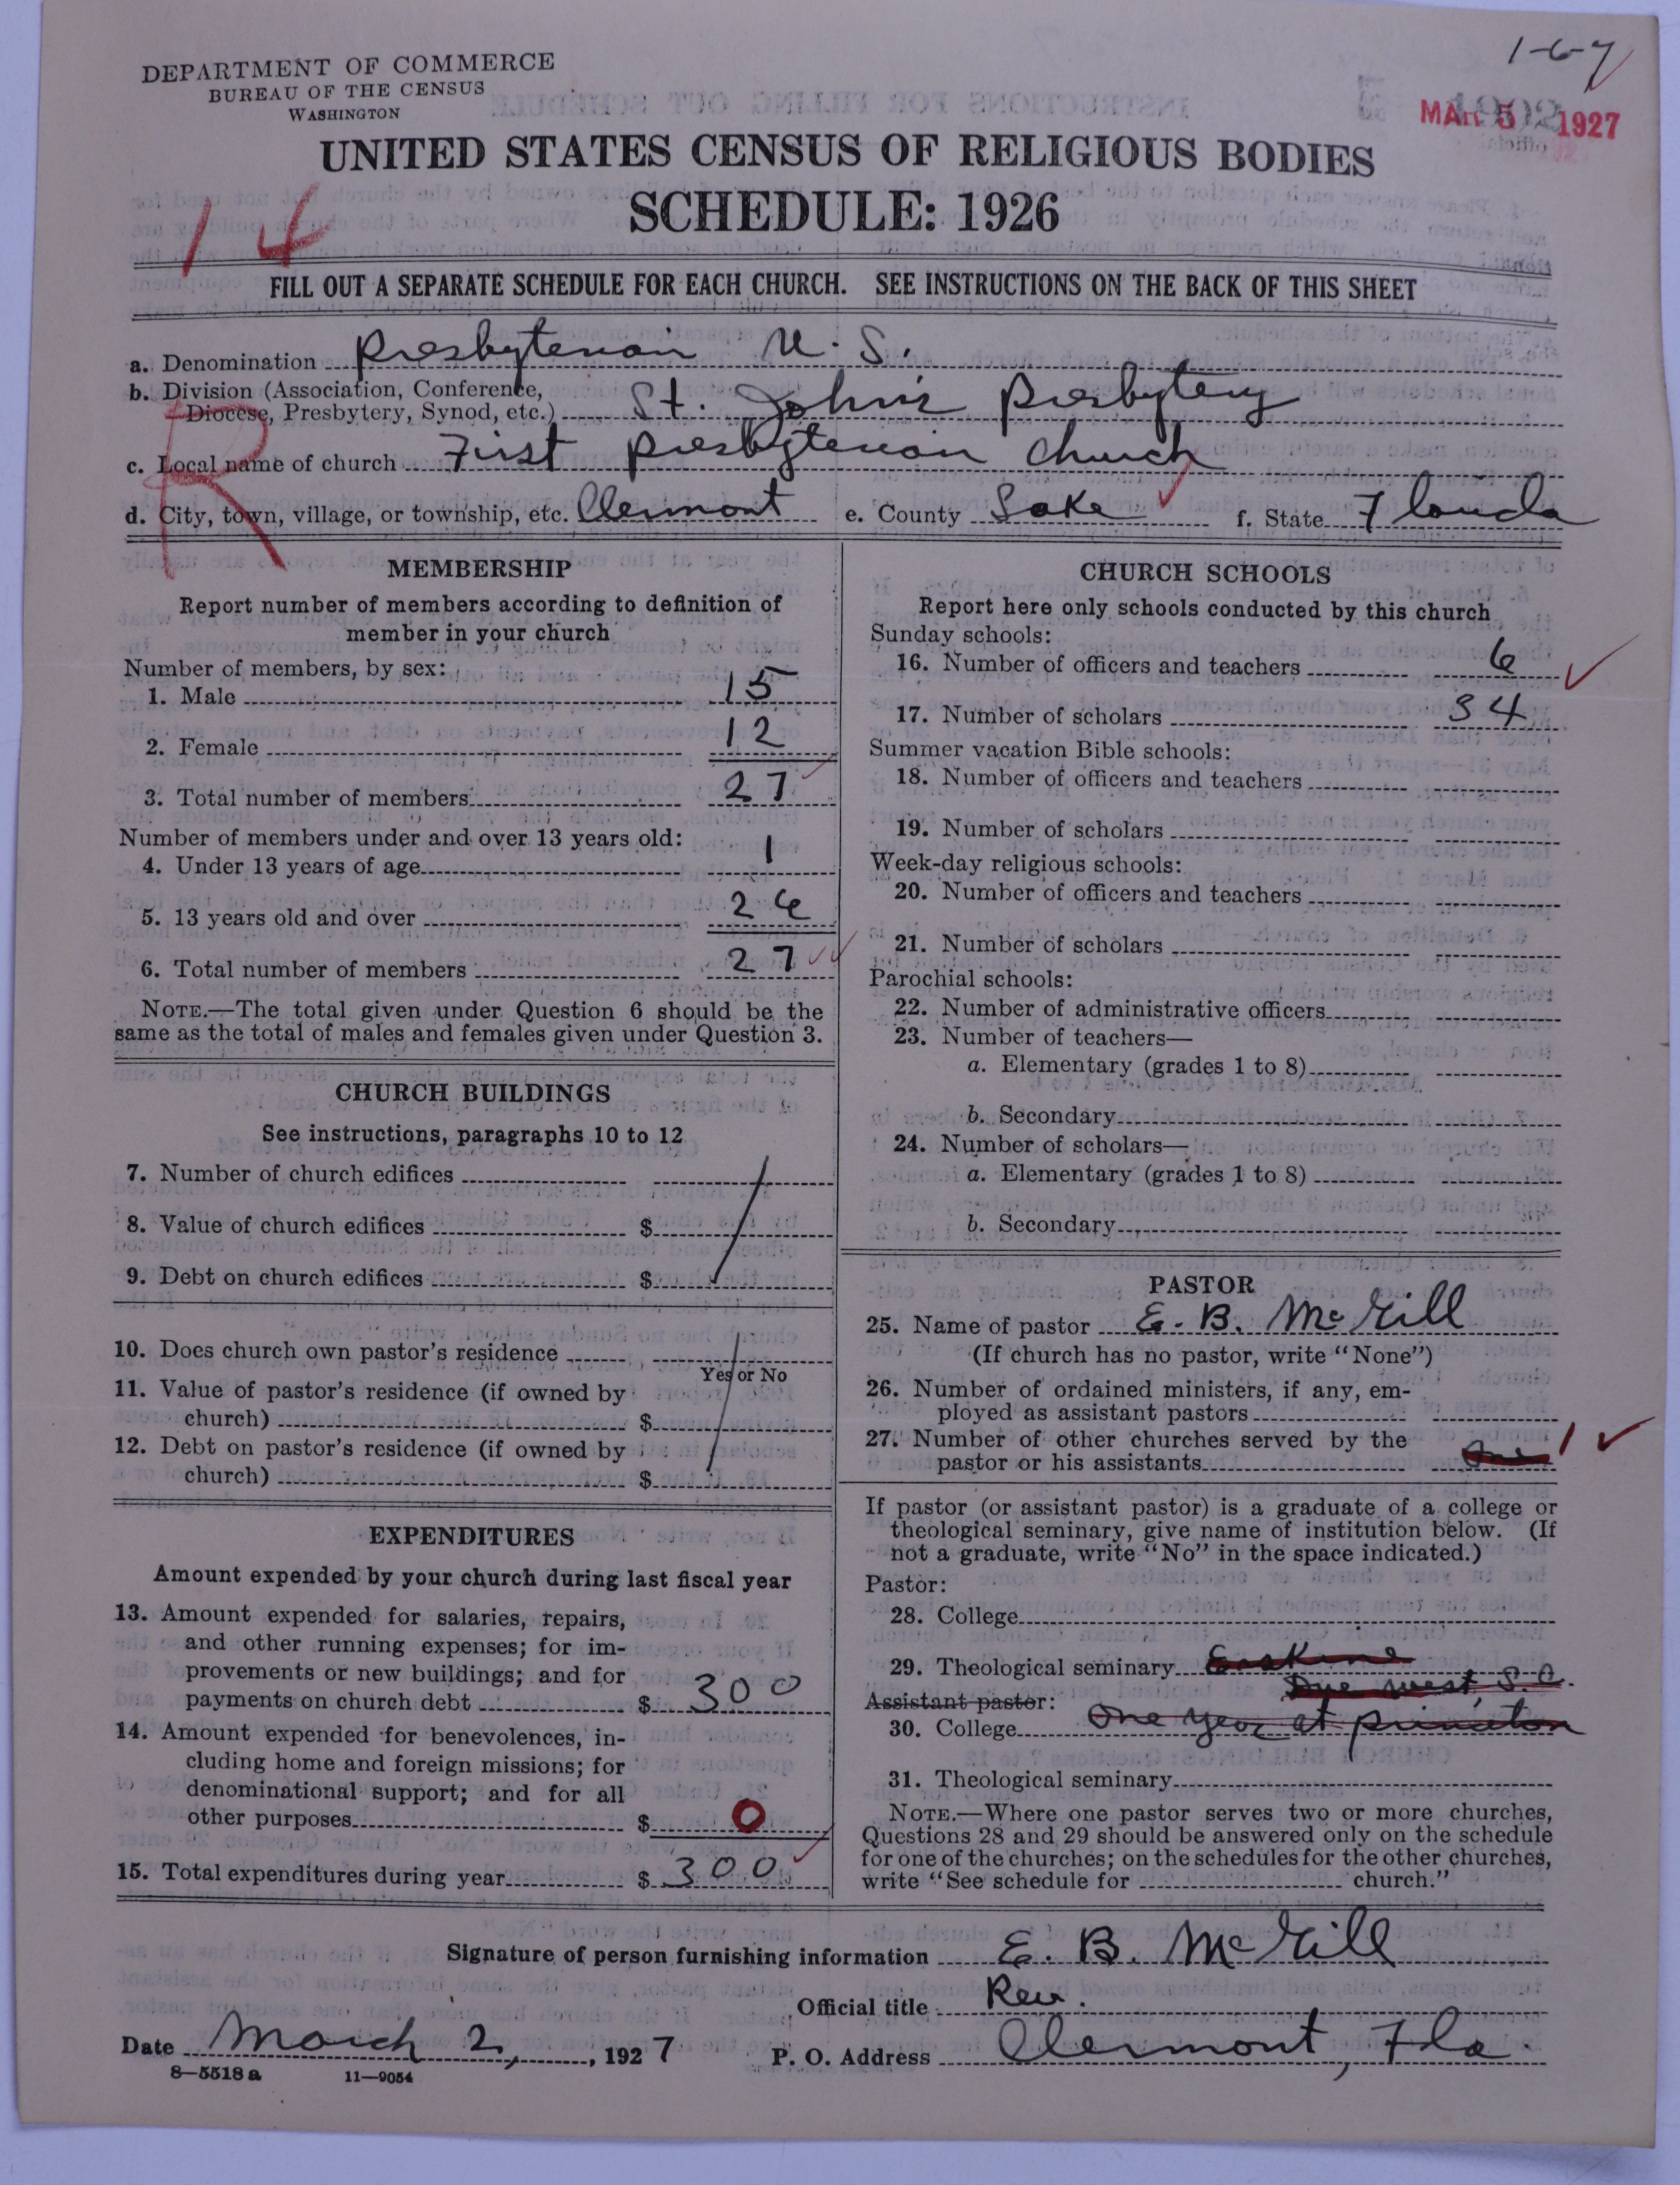 1-6-7
DEPARTMENT OF COMMERCE
BUREAU OF THE CENSUS
WASHINGTON
MAR 5 1927
UNITED STATES CENSUS OF RELIGIOUS BODIES
SCHEDULE: 1926
14
FILL OUT A SEPARATE SCHEDULE FOR EACH CHURCH. SEE INSTRUCTIONS ON THE BACK OF THIS SHEET
a. Denomination Presbyterian U. S.
b. Division (Association, Conference,
Diocese, Presbytery, Synod, etc.) St. John's Presbytery
c. Local name of church First Presbyterian Church
R
d. City, town, village, or township, etc. Clermont e. County Lake f. State Florida
MEMBERSHIP
Report number of members according to definition of
member in your church
Number of members, by sex:
1. Male 15
2. Female 12
3. Total number of members 27
Number of members under and over 13 years old:
4. Under 13 years of age 1
5. 13 years old and over 26
6. Total number of members 27
NOTE.—The total given under Question 6 should be the
same as the total of males and females given under Question 3.
CHURCH BUILDINGS
See instructions, paragraphs 10 to 12
7. Number of church edifices
8. Value of church edifices $
9. Debt on church edifices $
10. Does church own pastor's residence
Yes or No
11. Value of pastor's residence (if owned by
church) $
12. Debt on pastor's residence (if owned by
church) $
EXPENDITURES
Amount expended by your church during last fiscal year
13. Amount expended for salaries, repairs,
and other running expenses; for im-
provements or new buildings; and for
payments on church debt $ 300
14. Amount expended for benevolences, in-
cluding home and foreign missions; for
denominational support; and for all
other purposes $ 0
15. Total expenditures during year $ 300
CHURCH SCHOOLS
Report here only schools conducted by this church
Sunday schools:
16. Number of officers and teachers 6
17. Number of scholars 34
Summer vacation Bible schools:
18. Number of officers and teachers
19. Number of scholars
Week-day religious schools:
20. Number of officers and teachers
21. Number of scholars
Parochial schools:
22. Number of administrative officers
23. Number of teachers—
a. Elementary (grades 1 to 8)
b. Secondary
24. Number of scholars—
a. Elementary (grades 1 to 8)
b. Secondary
PASTOR
25. Name of pastor E. B. McGill
(If church has no pastor, write "None")
26. Number of ordained ministers, if any, em-
ployed as assistant pastors
27. Number of other churches served by the
pastor or his assistants One 1
If pastor (or assistant pastor) is a graduate of a college or
theological seminary, give name of institution below. (If
not a graduate, write "No" in the space indicated.)
Pastor:
28. College
29. Theological seminary Erskine
Due West, S.C.
Assistant pastor:
30. College One year at Princeton
31. Theological seminary
NOTE.—Where one pastor serves two or more churches,
Questions 28 and 29 should be answered only on the schedule
for one of the churches; on the schedules for the other churches,
write "See schedule for church."
Signature of person furnishing information E. B. McGill
Official title Rev.
Date March 2, 1927 P. O. Address Clermont, Fla.
8—5518 a 11—9054